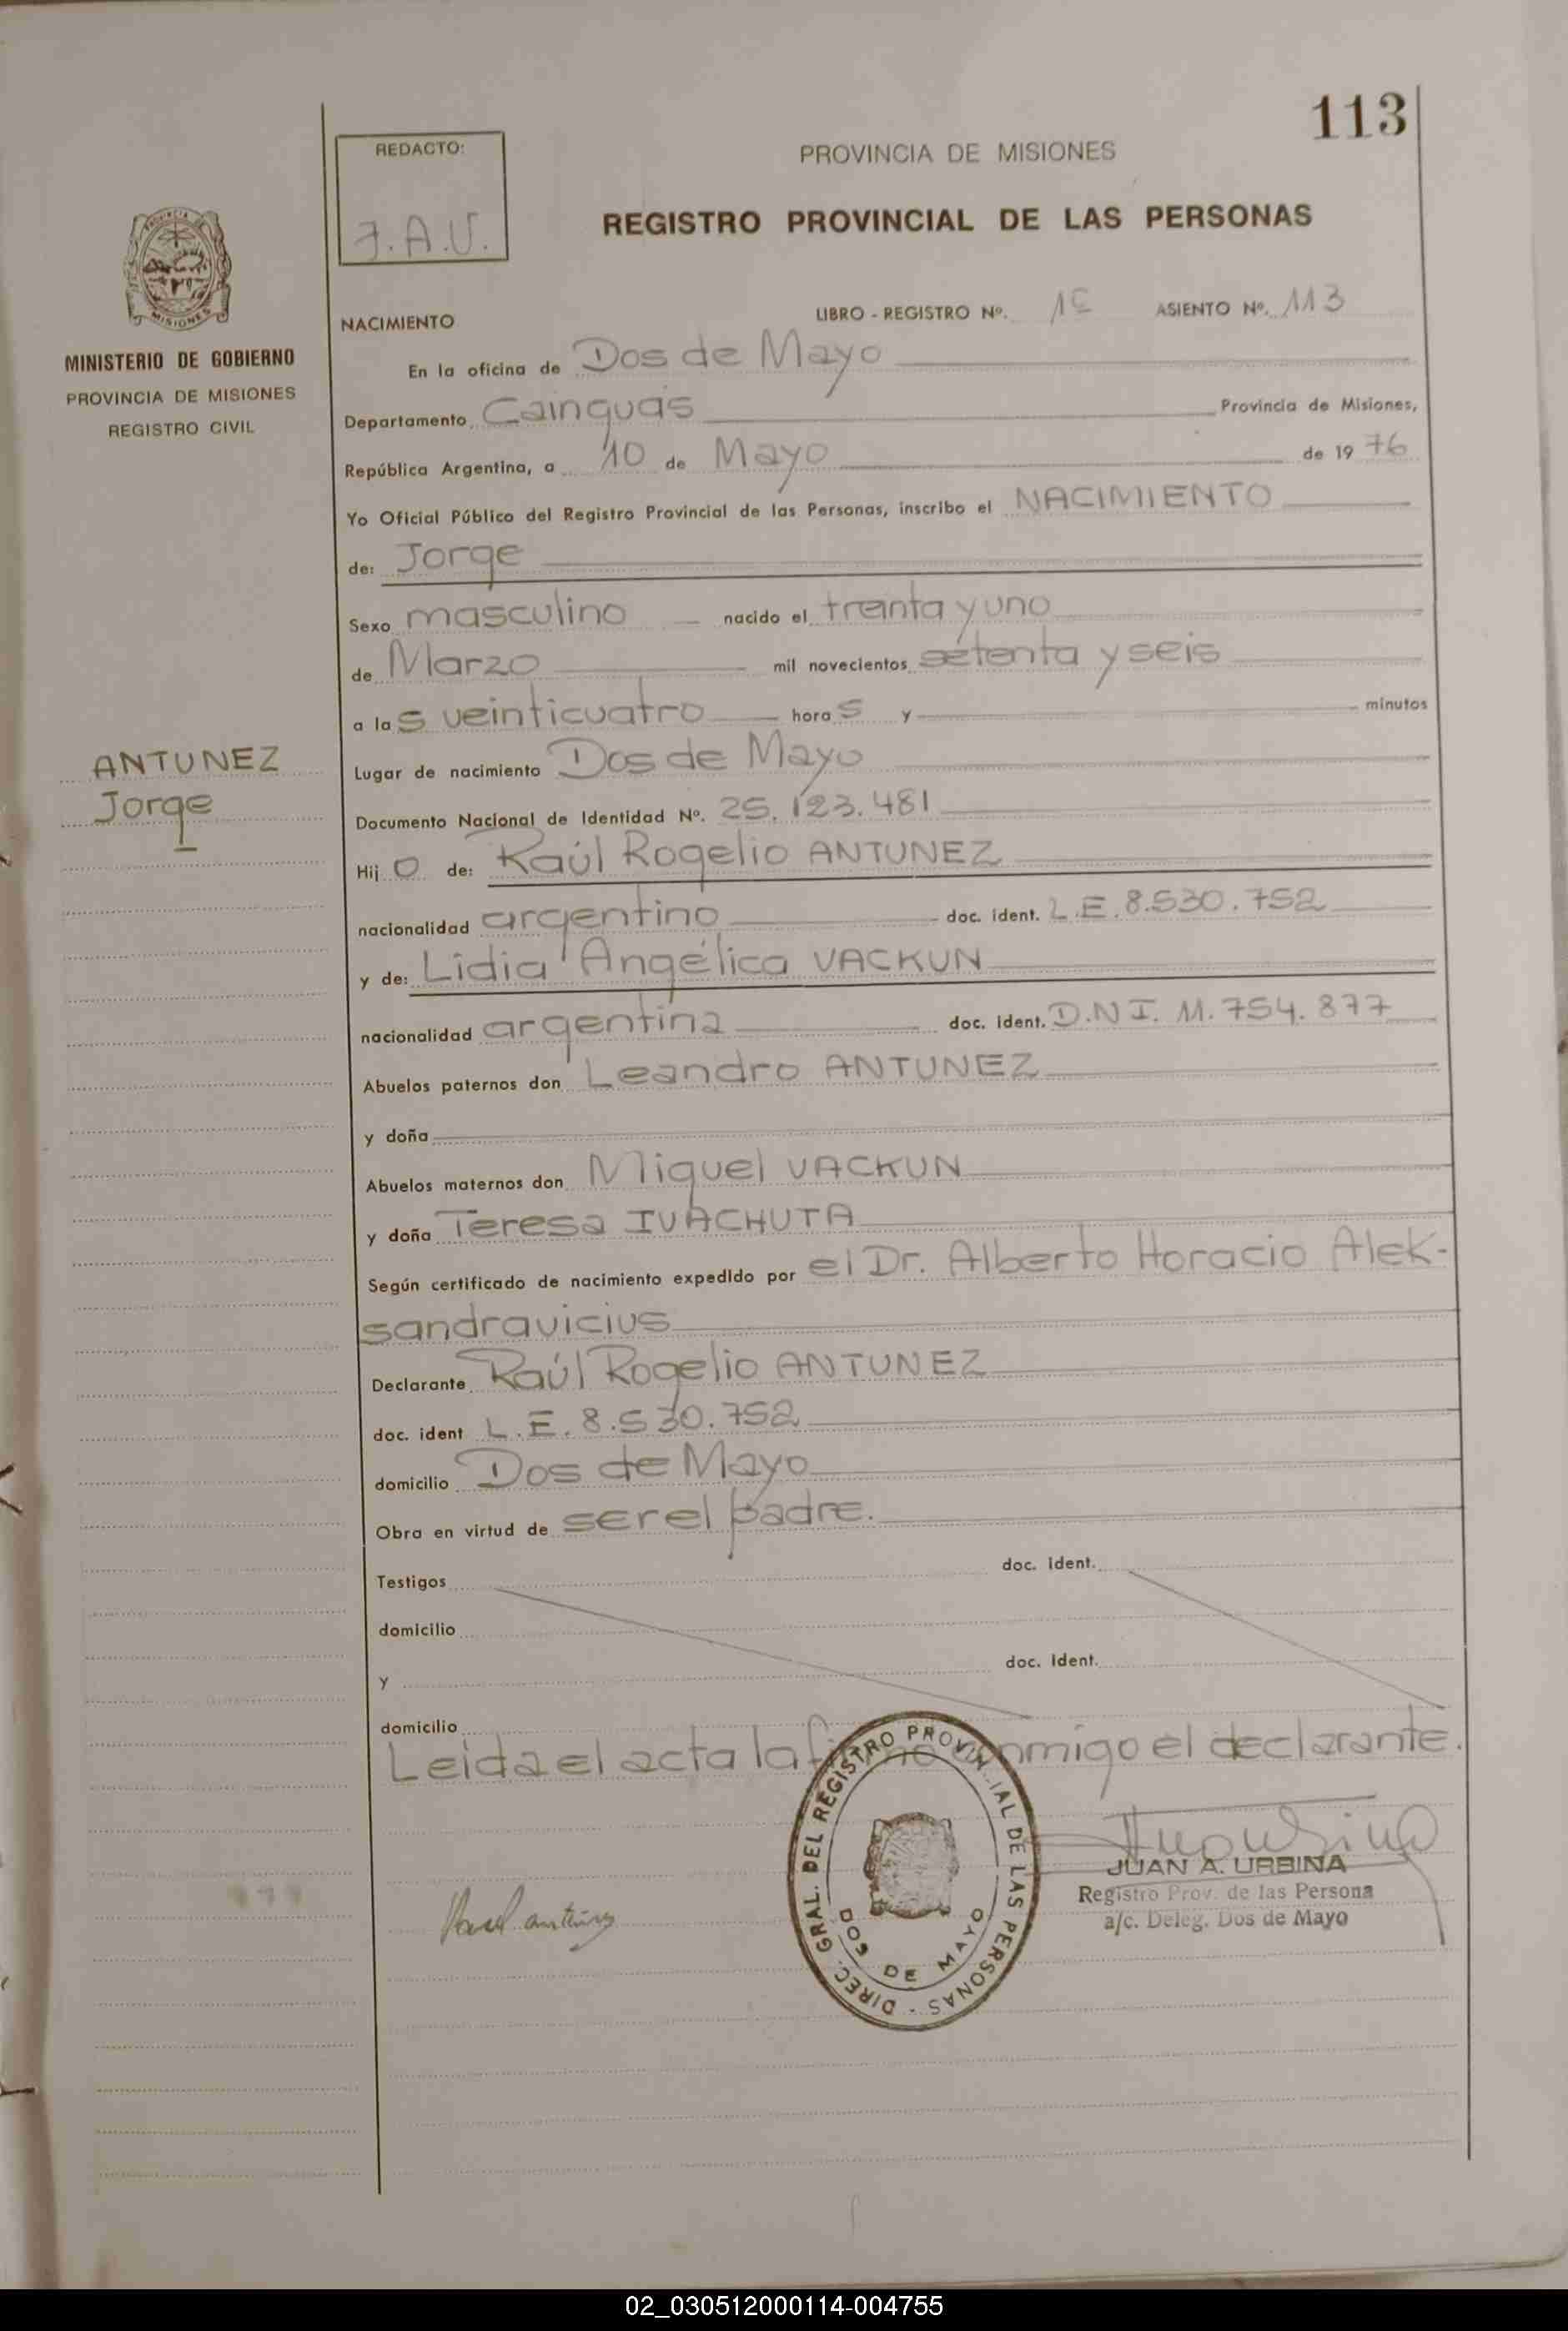 113
REDACTO:
J.A.U.
PROVINCIA DE MISIONES
REGISTRO PROVINCIAL DE LAS PERSONAS
MISIONES
MINISTERIO DE GOBIERNO
PROVINCIA DE MISIONES
REGISTRO CIVIL
NACIMIENTO LIBRO - REGISTRO Nº. ASIENTO Nº. 113
En la oficina de Dos de Mayo
Departamento Cainguás Provincia de Misiones,
República Argentina, a 10 de Mayo de 1976
Yo Oficial Público del Registro Provincial de las Personas, inscribo el NACIMIENTO
de: Jorge
Sexo masculino nacido el treinta y uno
de Marzo mil novecientos setenta y seis
a las veinticuatro horas y minutos
ANTUNEZ
Jorge
Lugar de nacimiento Dos de Mayo
Documento Nacional de Identidad Nº. 25.123.481
Hijo de: Raúl Rogelio ANTUNEZ
nacionalidad argentino doc. ident. L.E. 8.530.752
y de: Lidia Angélica VACKUN
nacionalidad argentina doc. ident. D.N.I. 11.754.877
Abuelos paternos don Leandro ANTUNEZ
y doña
Abuelos maternos don Miguel VACKUN
y doña Teresa IVACHUTA
Según certificado de nacimiento expedido por el Dr. Alberto Horacio Alek-
sandravicius
Declarante Raúl Rogelio ANTUNEZ
doc. ident L.E. 8.530.752
domicilio Dos de Mayo
Obra en virtud de ser el padre.
Testigos doc. ident.
domicilio
y doc. ident.
domicilio
Leida el acta la firma conmigo el declarante.
DIREC. GRAL. DEL REGISTRO PROVINCIAL DE LAS PERSONAS -
DOS DE MAYO
JUAN A. URBINA
Registro Prov. de las Persona
a/c. Deleg. Dos de Mayo
Raul antunez
02_030512000114-004755